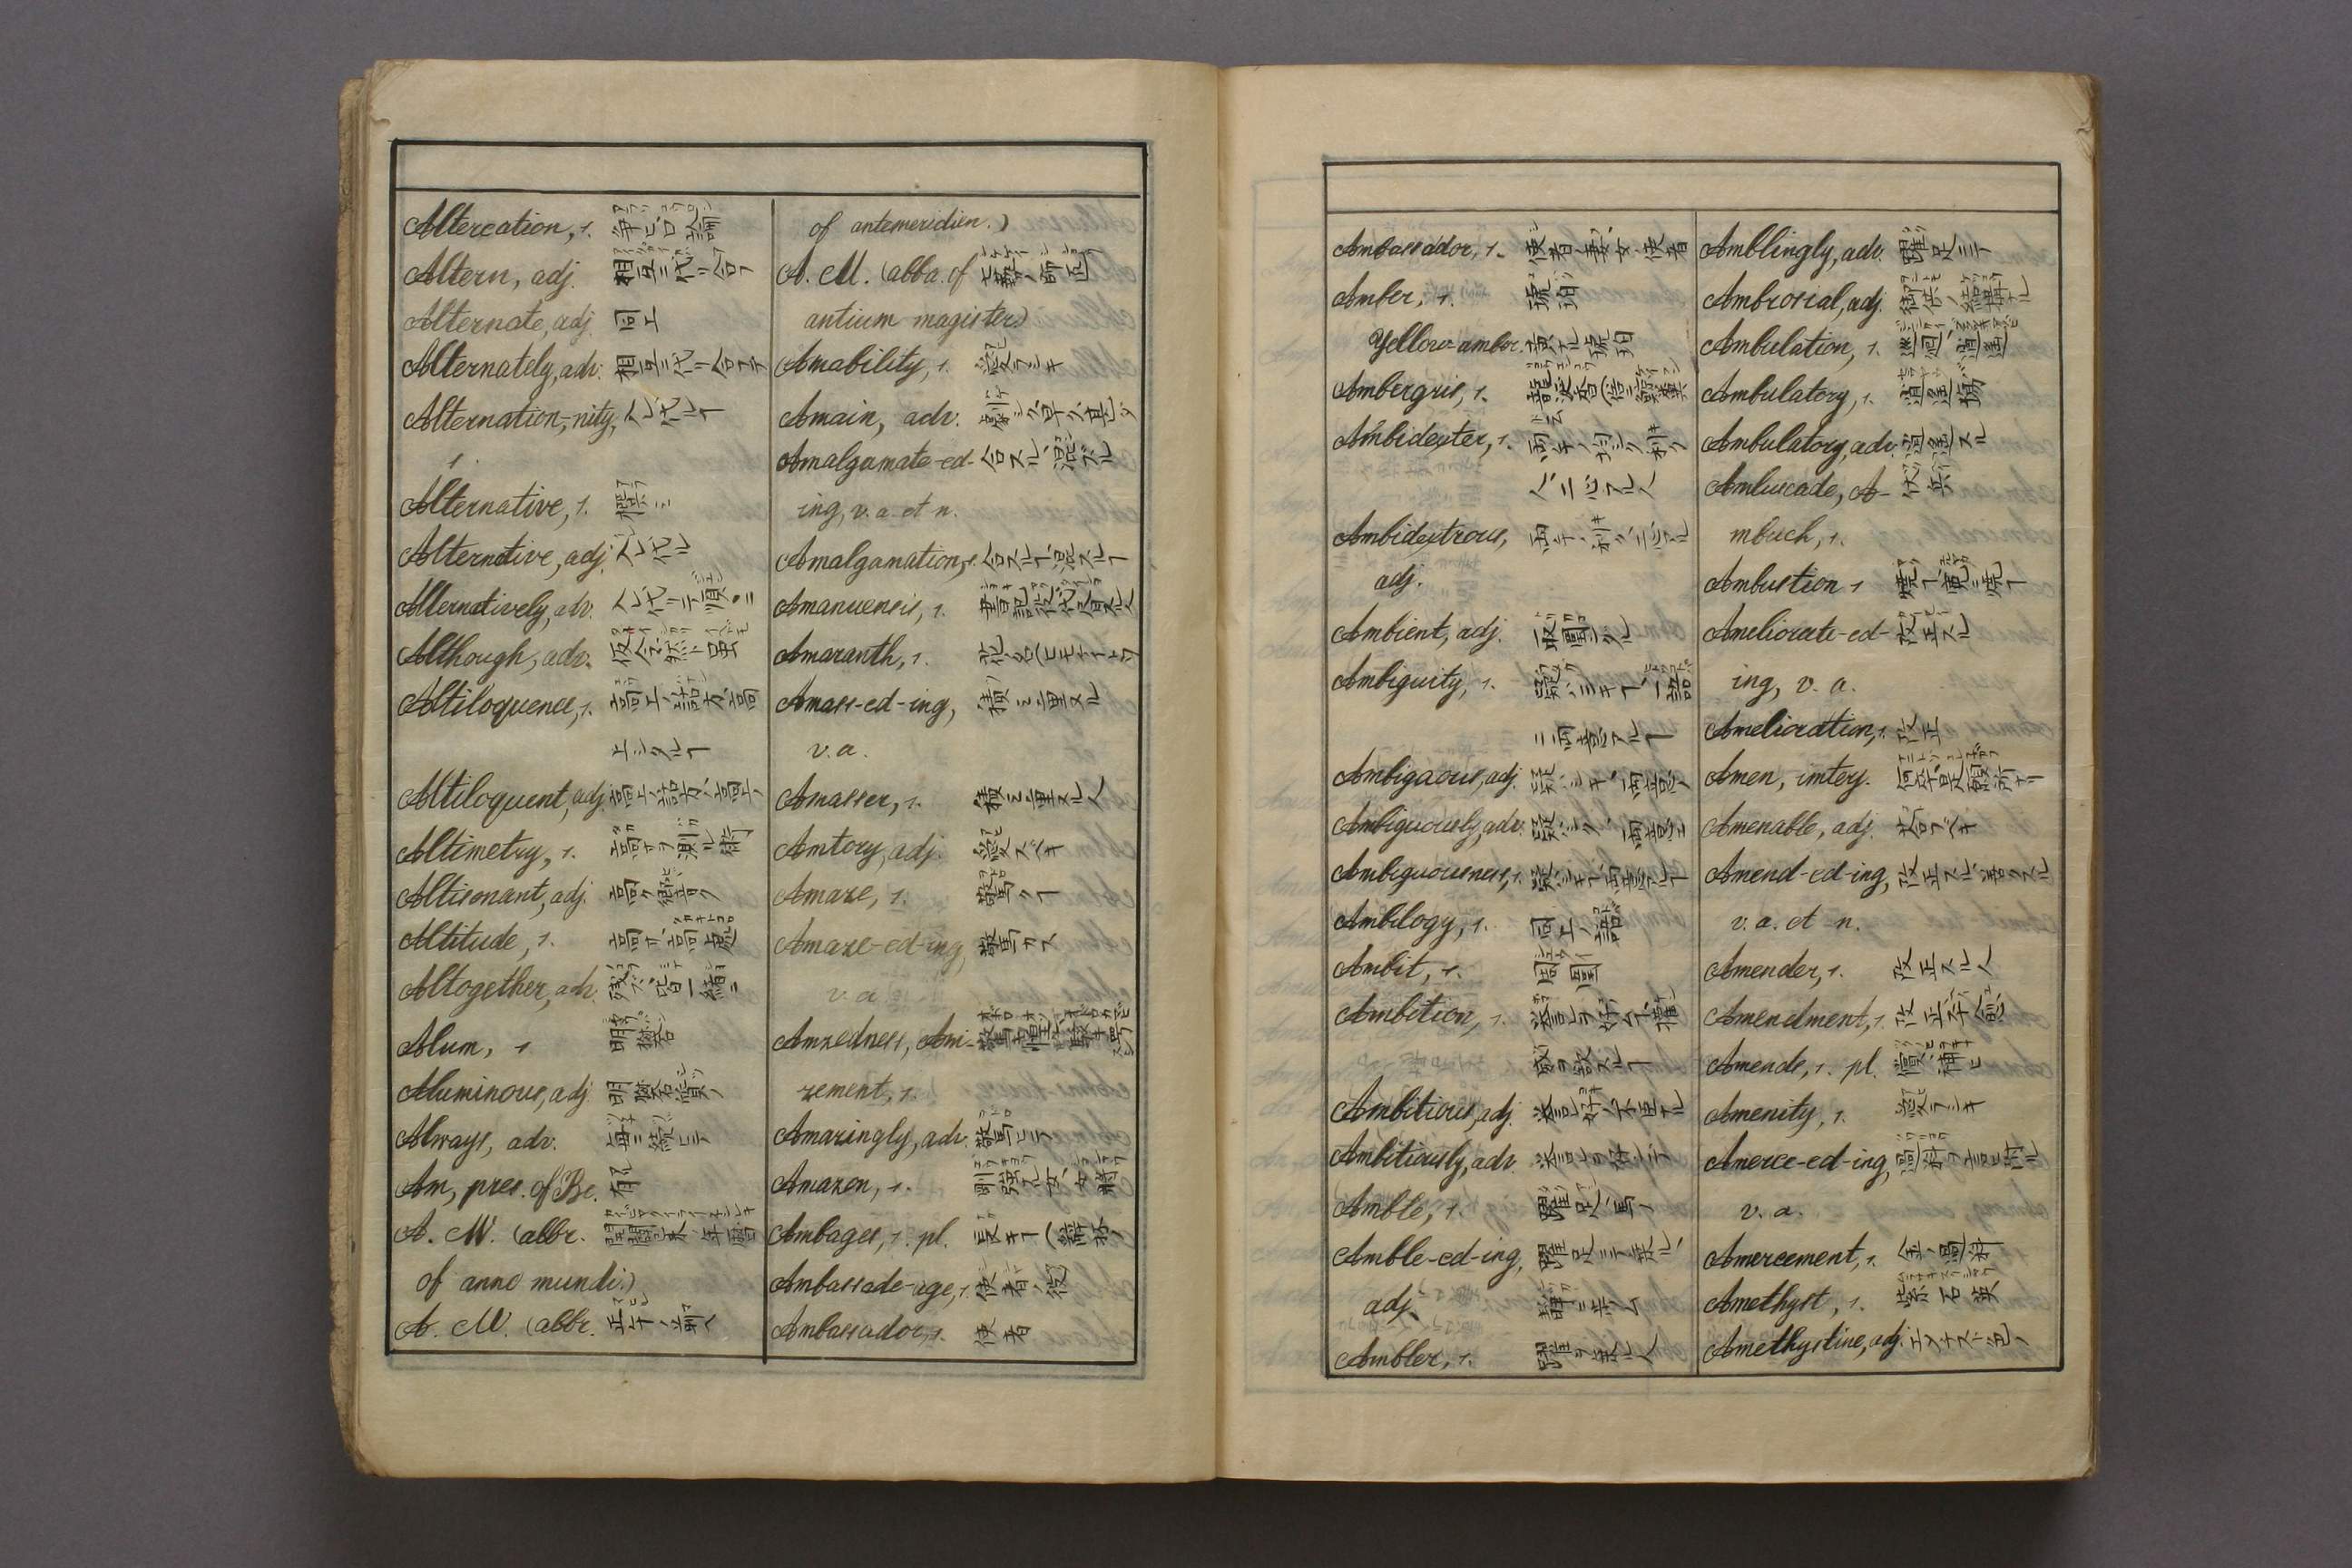 Altercation, s. 争ヒ、口論
Altern, adj. 相互ニ代リ合フ
Alternate, adj. 同上
Alternately, adv. 相互ニ代リ合フテ
Alternation,-nity, 入レ代ルヿ
s.
Alternative, s.
Alternative, adj. 入レ代ル
Alternatively, adv. 入レ代リテ、順ニ
Although, adv. 仮令、然ト虽
Altiloquence, s. 高上ノ話方、高
上シクルヿ
Altiloquent, adj. 高上ノ話方ノ、高上ノ
Altimetry, s. 高サヲ測ル術
Altisonant, adj. 高ク響ク
Altitude, s. 高サ、高處
Altogether, adv. 残ラズ、皆一緒ニ
Alum, s. 明礬
Aluminous, adj. 明礬質ノ
Always, adv. 毎ニ、続ヒテ
Am, pres. of Be. 有
A. M. (abbr. 開闢已来ノ年暦
of anno mundi.)
A. M. (abbr. 正午ノ前
of antemeridien.)
A. M. (abba. of 七藝ノ師匠
antium magister)
Amability, s. 愛ラシキ
Amain, adv. 劇シク、早ク、甚ダ
Amalgamate-ed- 合スル、混ズル
ing, v. a. et n.
Amalgamation, s. 合スルヿ、混スルヿ
Amanuensis, s.
Amaranth, s. 花ノ名
Amass-ed-ing, 積ミ重ヌル
v. a.
Amasser, s. 積ミ重ヌル人
Amtory, adj. 愛スベキ
Amaze, s. 驚クヿ
Amaze-ed-ing, 驚カス
v. a.
Amzedness, Am-
zement, s.
Amazingly, adv. 驚ヒテ
Amazon, s. 剛強ナル女、女将
Ambages, s. pl. 長キヿ
Ambassade-age, s. 使者ノ役
Ambassador, s. 使者
Ambassador, s. 使者ノ妻、女ノ使者
Amber, s. 琥珀
Yellow-amber. 黄ナル琥珀
Ambergris, s. 龍涎香
Ambidexter, s. 両手ノ均シク利ク
人、二心アル人
Ambidextrous, 両手ノ利ク、二心アル
adj.
Ambient, adj. 取囲ンダル
Ambiguity, s. 疑ハシキヿ、一語
ニ両意アルヿ
Ambigaous, adj. 疑ハシキ、両意ノ
Ambiguously, adv. 疑ハシク、両意ニ
Ambiguousness, s. 疑ハシキヿ、両意アルヿ
Ambilogy, s. 同上ノ語
Ambit, s. 周囲
Ambition, s. 誉レヲ好ムヿ、権
威ヲ欲スルヿ
Ambitious, adj. 誉レ好ノ
Ambitiously, adv. 誉レヲ好ンデ
Amble, s.
Amble-ed-ing,
adj.
Ambler, s.
Amblingly, adv.
Ambrosial, adj.
Ambulation, s. 逍遥
Ambulatory, s. 逍遥場
Ambulatory, adv. 逍遥スル
Ambuscade, A- 伏兵
mbuch, s.
Ambustion s
Ameliorate-ed- 改正スル
ing, v. a.
Amelioration, s. 改正
Amen, intery.
Amenable, adj. 答フベキ
Amend-ed-ing, 改正スル、善クスル
v. a. et n.
Amender, s. 改正スル人
Amendment, s. 改正、平癒
Amends, s. pl. 償、補ヒ
Amenity, s. 愛ラシキ
Amerce-ed-ing,
v. a.
Amercement, s. 金ノ過料
Amethyst, s. 紫石英
Amethystine, adj.